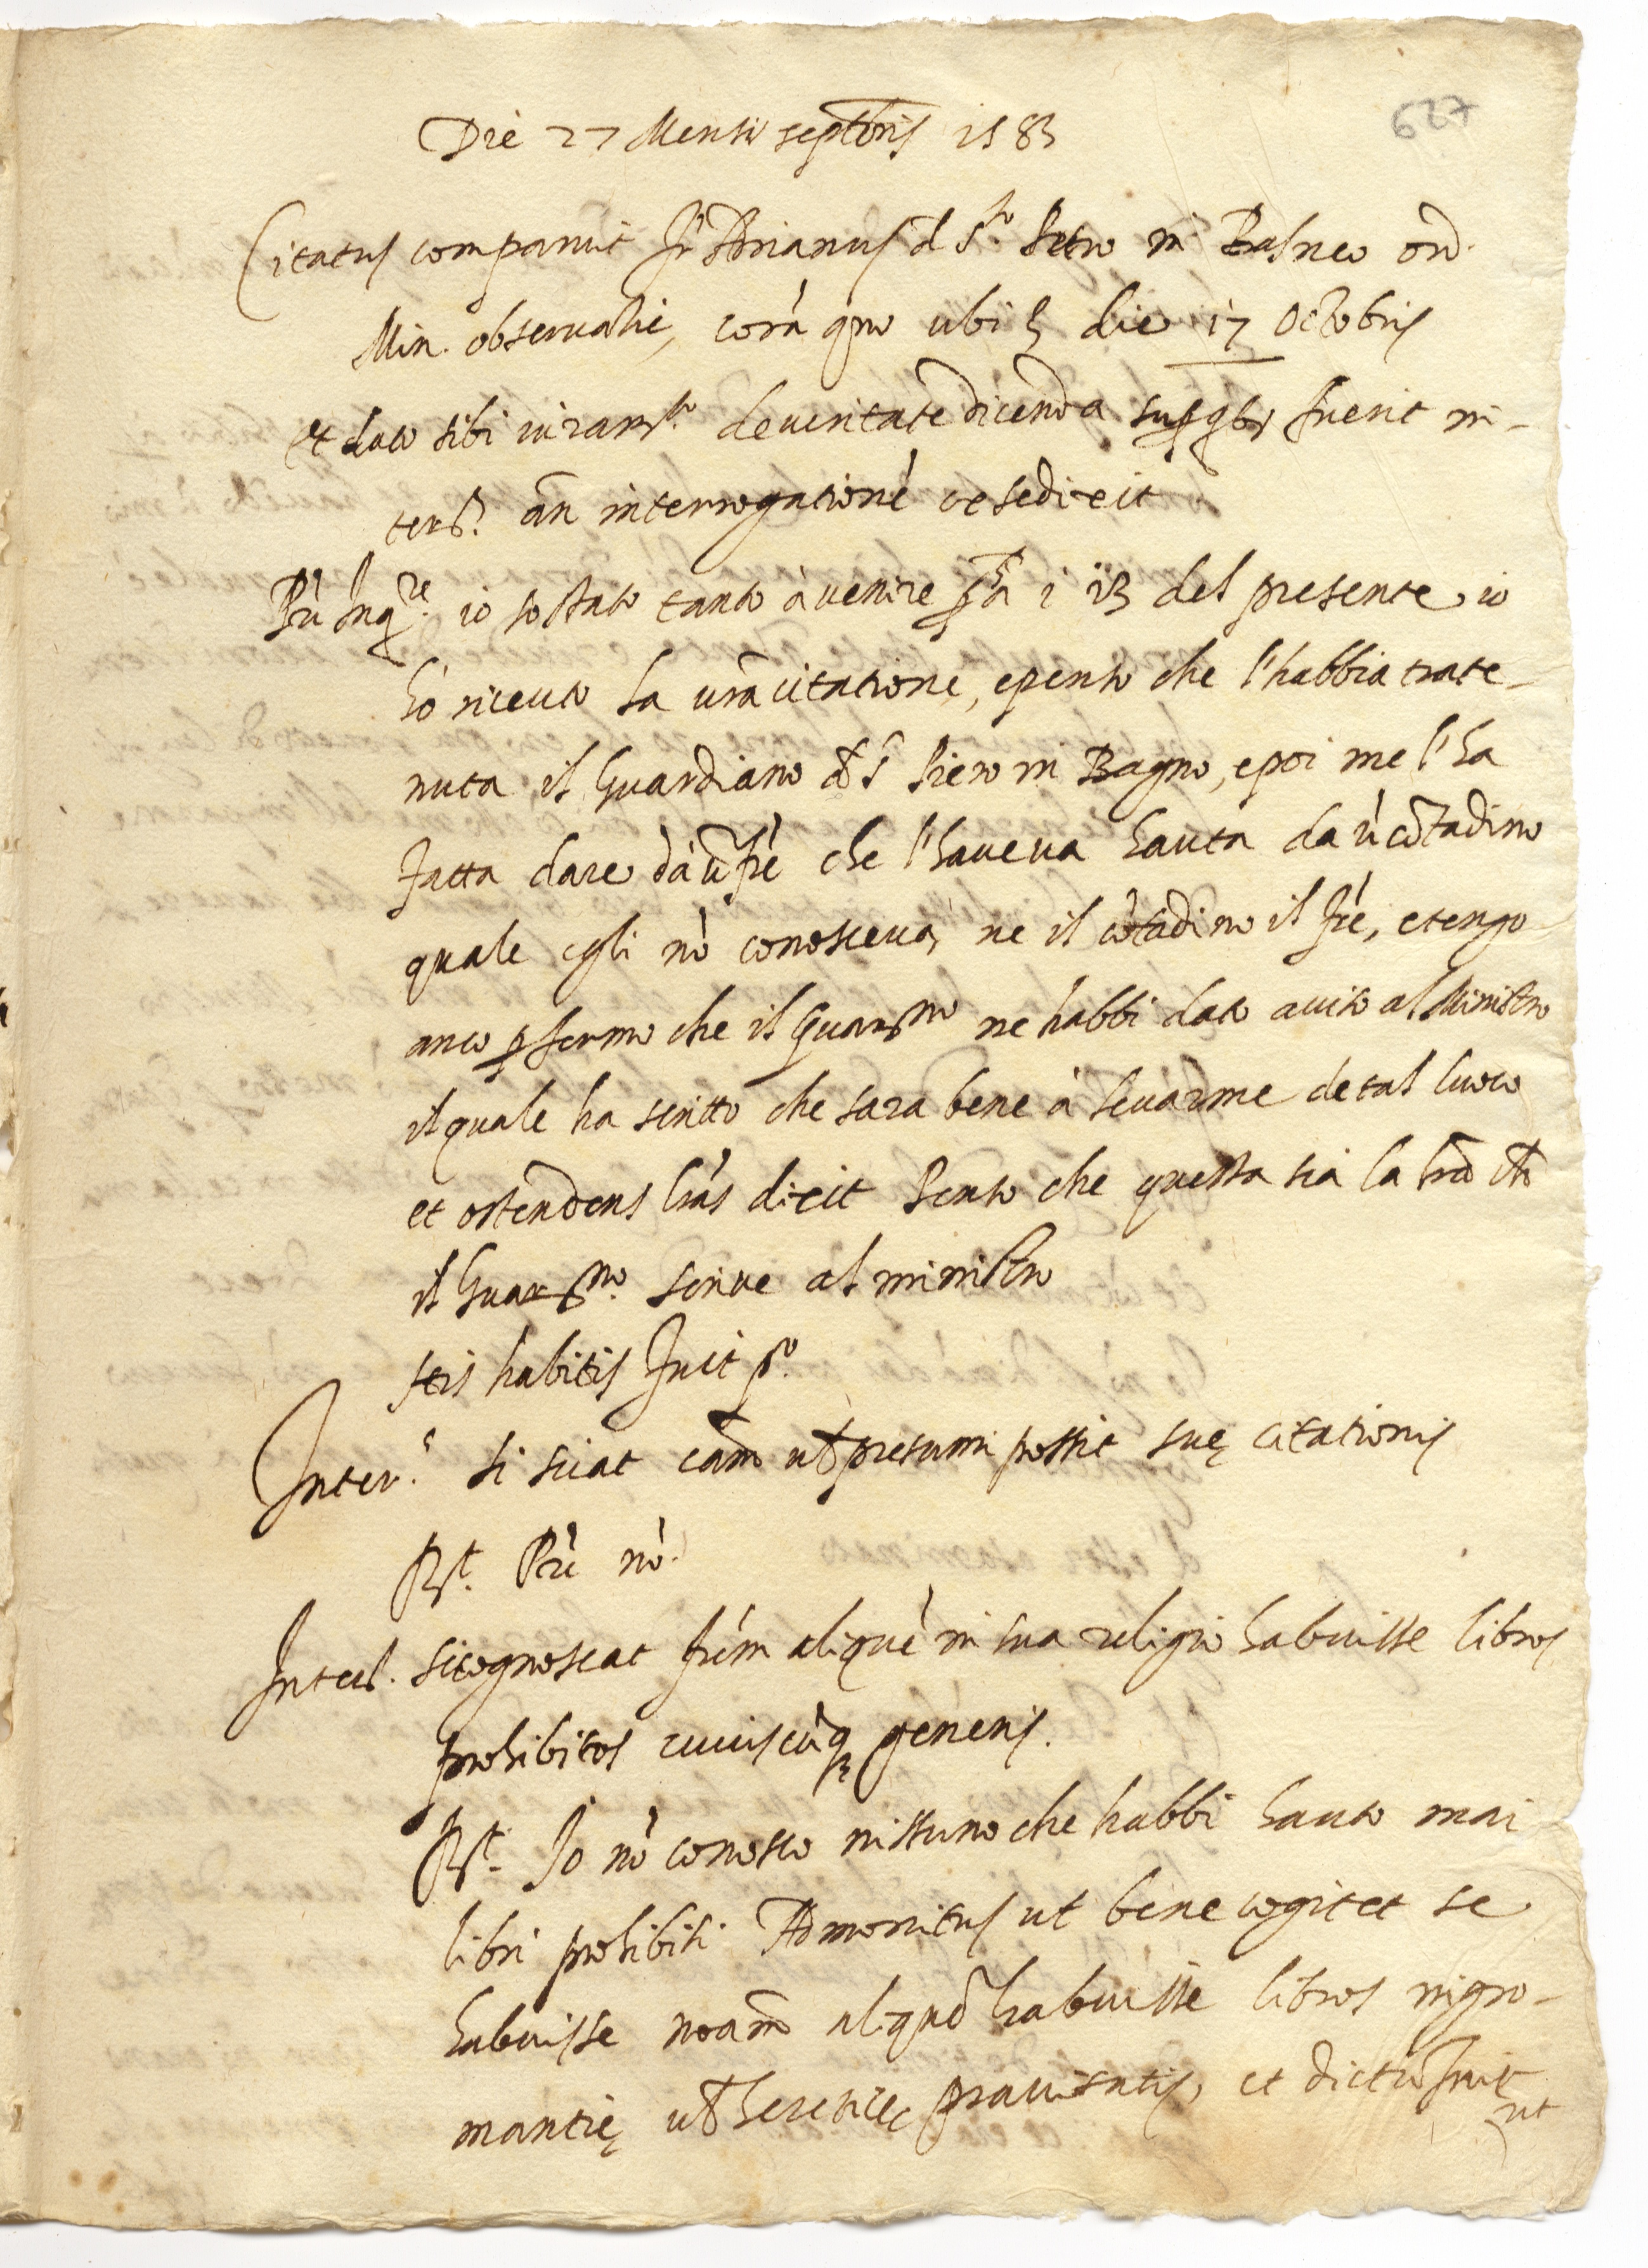 627
Die 27 Mensis septebris 1583
Citatus comparuit fr Adrianus d Sto Petro in Balneo ord.
Min. observatie, corā quo ubi s die 17 Octobris
et dato sibi iurarto de veritate dicenda sup qbs fuerit in-
ters. an interrogationē vese dixit
Pre Inqre. io so stato tanto à venire pchā i 13 del presente io
hò riceuto la vrā citatione, e penso che l'habbia trate-
nuta il Guardiano d S Piero in Bagno, e poi me l'ha
fatta dare dà ū frē che l'haveva hauta da ū cōtadino
quale egli nō conosceva, ne il cōtadino il frē, e tengo
anco p fermo che il Guardno ne habbi dato aviso al Ministro
il quale ha scritto che sara bene à levarme de tal luoco
et ostendens lrās dixit Penso che questa sia la lrā ch
il Guardno. scrive al ministro
his habitis fuit
Inter.s si sciat cam vl presumi possit suę citationis
Rt. Prē nō.
Inters. si cognoscat frēm aliquē in sua religio habuisse libros
prohibitos cuiuscūq generis.
Rt. Io nō conosco nissuno che habbi hauto mai
libri prohibiti. Admonitus ut bene cogitet se
habuisse noām aliquē habuisse libros nigro-
mantię vl heretice pravitatis, et dictū fuit
ut